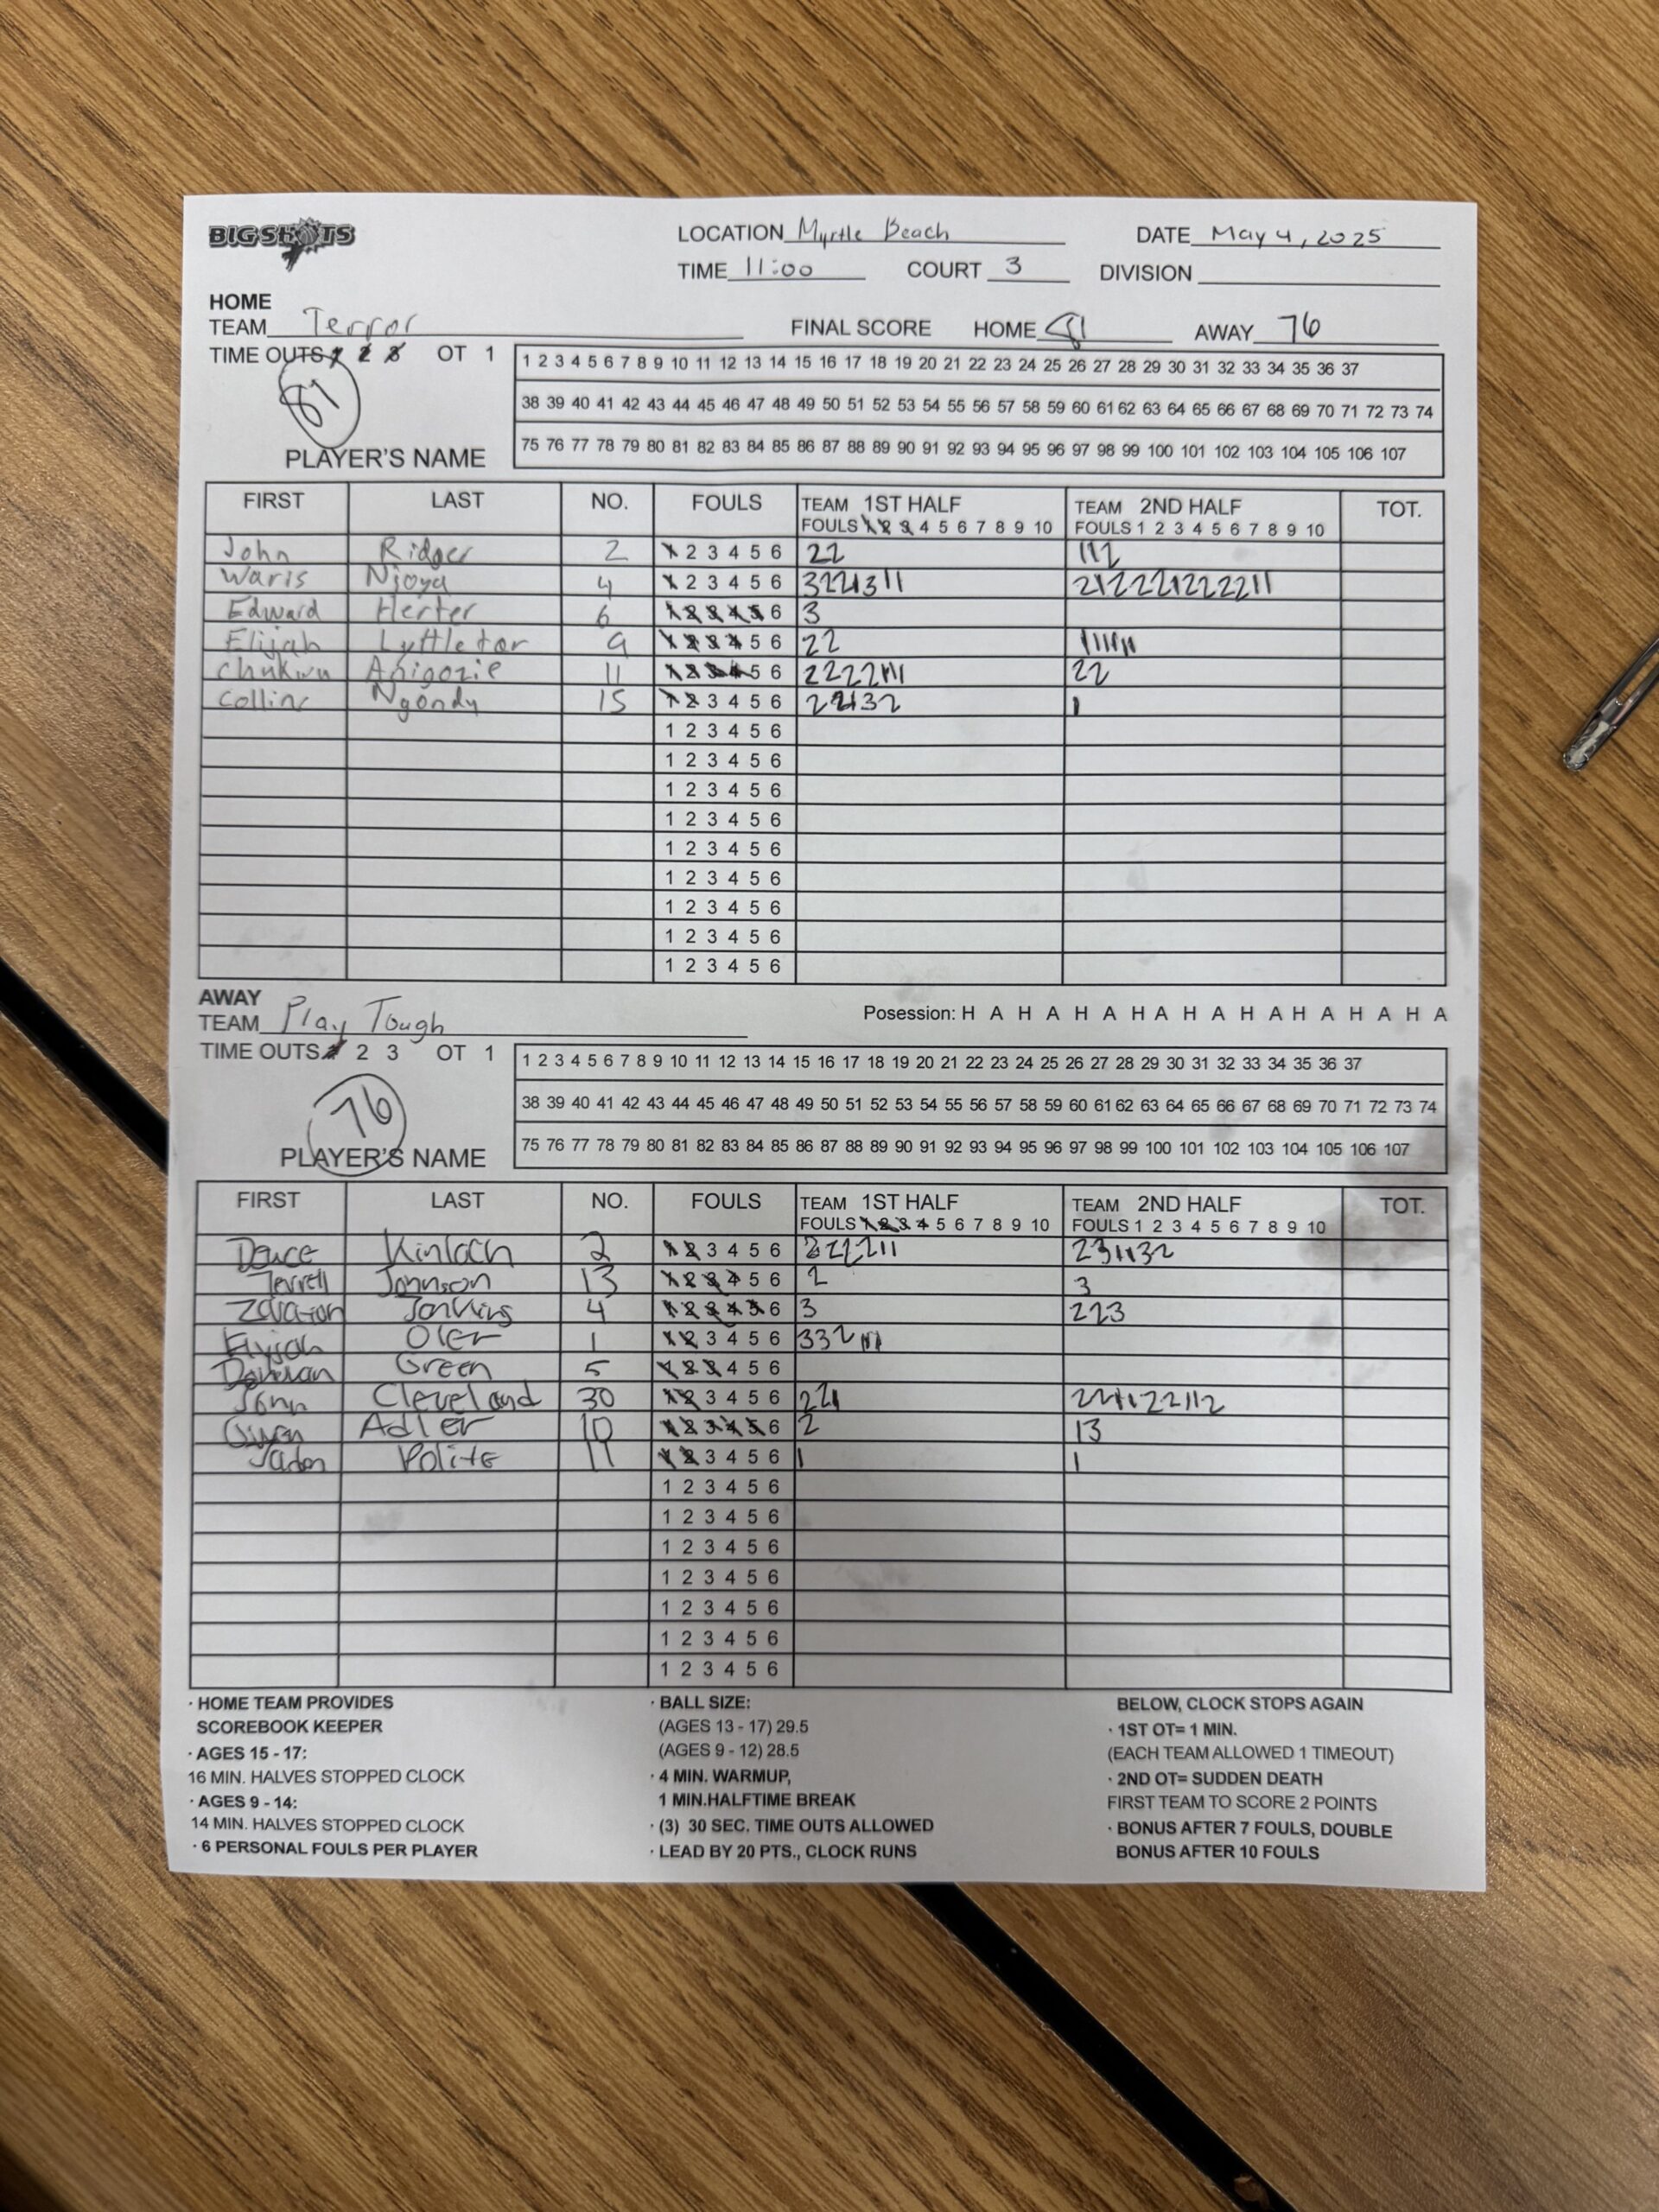 BIG SHOTS
LOCATION Myrtle Beach DATE May 4, 2025
TIME 11:00 COURT 3 DIVISION
HOME
TEAM Terror FINAL SCORE HOME 81 AWAY 76
TIME OUTS 1 2 3 OT 1
81
1 2 3 4 5 6 7 8 9 10 11 12 13 14 15 16 17 18 19 20 21 22 23 24 25 26 27 28 29 30 31 32 33 34 35 36 37
38 39 40 41 42 43 44 45 46 47 48 49 50 51 52 53 54 55 56 57 58 59 60 61 62 63 64 65 66 67 68 69 70 71 72 73 74
75 76 77 78 79 80 81 82 83 84 85 86 87 88 89 90 91 92 93 94 95 96 97 98 99 100 101 102 103 104 105 106 107
PLAYER'S NAME
FIRST LAST NO. FOULS TEAM 1ST HALF TEAM 2ND HALF TOT.
FOULS 1 2 3 4 5 6 7 8 9 10 FOULS 1 2 3 4 5 6 7 8 9 10
John Ridger 2 1 2 3 4 5 6 22 112
Waris Njoya 4 1 2 3 4 5 6
Edward Herter 6 1 2 3 4 5 6 3
Elijah 9 1 2 3 4 5 6 22
Chukwu Anigozie 11 1 2 3 4 5 6 2222111 22
Collins Ngondy 15 1 2 3 4 5 6 1
1 2 3 4 5 6
1 2 3 4 5 6
1 2 3 4 5 6
1 2 3 4 5 6
1 2 3 4 5 6
1 2 3 4 5 6
1 2 3 4 5 6
1 2 3 4 5 6
1 2 3 4 5 6
AWAY
TEAM Play Tough Posession: H A H A H A H A H A H A H A H A H A
TIME OUTS 1 2 3 OT 1
76
1 2 3 4 5 6 7 8 9 10 11 12 13 14 15 16 17 18 19 20 21 22 23 24 25 26 27 28 29 30 31 32 33 34 35 36 37
38 39 40 41 42 43 44 45 46 47 48 49 50 51 52 53 54 55 56 57 58 59 60 61 62 63 64 65 66 67 68 69 70 71 72 73 74
75 76 77 78 79 80 81 82 83 84 85 86 87 88 89 90 91 92 93 94 95 96 97 98 99 100 101 102 103 104 105 106 107
PLAYER'S NAME
FIRST LAST NO. FOULS TEAM 1ST HALF TEAM 2ND HALF TOT.
FOULS 1 2 3 4 5 6 7 8 9 10 FOULS 1 2 3 4 5 6 7 8 9 10
Deuce Kinloch 2 1 2 3 4 5 6 231132
Terrell Johnson 13 1 2 3 4 5 6 2 3
Jenkins 4 1 2 3 4 5 6 3 223
Elijah Oler 1 1 2 3 4 5 6 332111
Donovan Green 5 1 2 3 4 5 6
John Cleveland 30 1 2 3 4 5 6 221
Owen Adler 10 1 2 3 4 5 6 2 13
Jaden Polite 11 1 2 3 4 5 6 1 1
1 2 3 4 5 6
1 2 3 4 5 6
1 2 3 4 5 6
1 2 3 4 5 6
1 2 3 4 5 6
1 2 3 4 5 6
1 2 3 4 5 6
· HOME TEAM PROVIDES
SCOREBOOK KEEPER
· AGES 15 - 17:
16 MIN. HALVES STOPPED CLOCK
· AGES 9 - 14:
14 MIN. HALVES STOPPED CLOCK
· 6 PERSONAL FOULS PER PLAYER
· BALL SIZE:
(AGES 13 - 17) 29.5
(AGES 9 - 12) 28.5
· 4 MIN. WARMUP,
1 MIN.HALFTIME BREAK
· (3) 30 SEC. TIME OUTS ALLOWED
· LEAD BY 20 PTS., CLOCK RUNS
BELOW, CLOCK STOPS AGAIN
· 1ST OT= 1 MIN.
(EACH TEAM ALLOWED 1 TIMEOUT)
· 2ND OT= SUDDEN DEATH
FIRST TEAM TO SCORE 2 POINTS
· BONUS AFTER 7 FOULS, DOUBLE
BONUS AFTER 10 FOULS